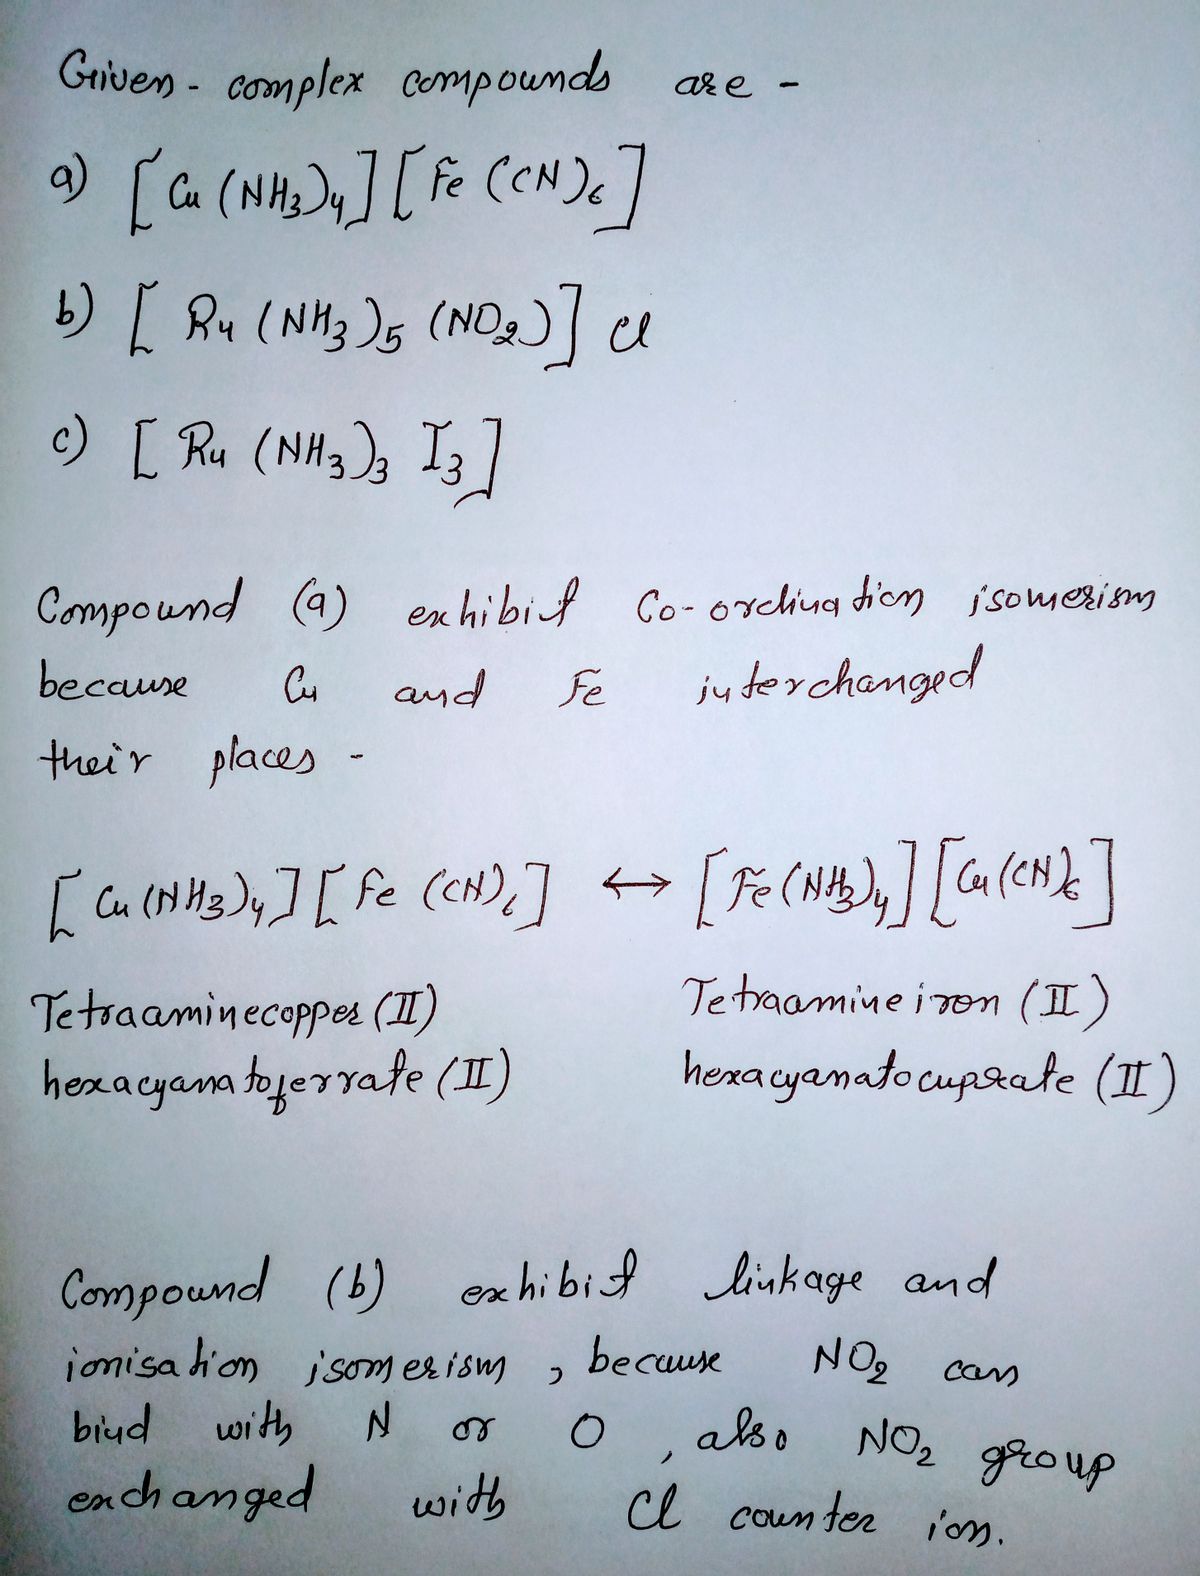 Given - complex compounds are -
a) [Cu(NH3)4][Fe(CN)6]
b) [Ru(NH3)5(NO2)]Cl
c) [Ru(NH3)3 I3]
Compound (a) exhibit Co-ordination isomerism
because Cu and Fe interchanged
their places -
[Cu(NH3)4][Fe(CN)6] ↔ [Fe(NH3)4][Cu(CN)6]
Tetraaminecopper (II) Tetraamineiron (II)
hexacyanatoferrate (II) hexacyanatocuprate (II)
Compound (b) exhibit linkage and
ionisation isomerism, because NO2 can
bind with N or O, also NO2 group
exchanged with Cl counter ion.